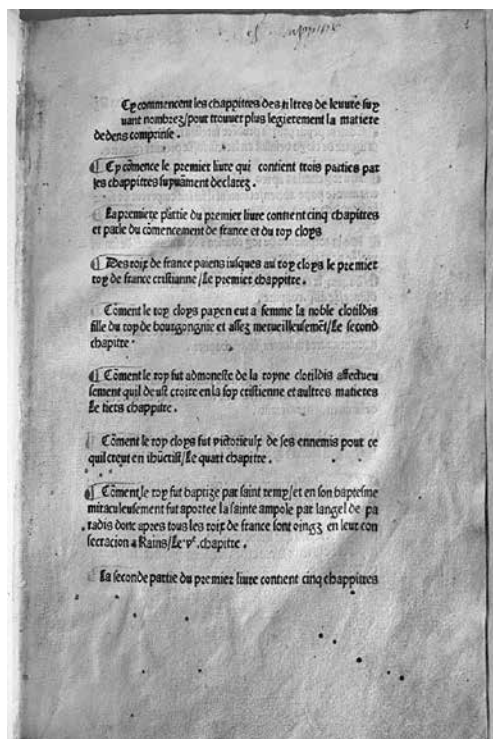 Cy commencent les chappitres des tiltres de leuure suy
uant nombrez/pour trouuer plus legierement la matiere
dedens comprinse.
¶ Cy cōmence le premier liure qui contient trois parties par
les chappitres suyuāment declarez.
La premiere partie du premier liure contient cinq chapitres
et parle du cōmencement de france et du roy cloys
¶ Des roix de france paiens iusques au roy cloys le premier
roy de france cristianne/Le premier chappitre.
Cōment le roy cloys payen eut a femme la noble clotildis
fille du roy de bourgongnie et assez merueilleusemēt/Le second
chapitre.
¶ Cōment le roy fut admoneste de la royne clotildis affectueu
sement quil deust croire en la foy cristienne et aultres matieres
Le tiers chappitre.
Cōment le roy cloys fut victorieulx de ses ennemis pour ce
quil creut en ihūcrist/Le quart chapitre.
¶ Cōment le roy fut baptize par saint remy/et en son baptesme
miraculeusement fut aportee la sainte ampole par langel de pa
radis donc apres tous les roix de france sont oingz en leur con
secracion a Rains/Le .vᵉ. chapitre.
La seconde partie du premier liure contient cinq chappitres